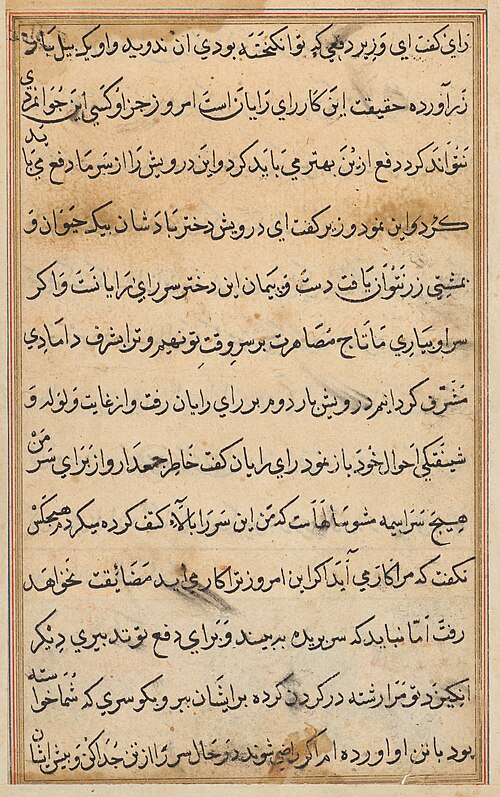 رای گفت ای وزیر دفعی که تو انگیخته بودی آن ندوید و او یک پیل بار
زر آورده حقیقت این کار رای رایان است امروز جز او کسی این جوانمردی
نتواند کرد دفع ازین بهتر می باید کرد و این درویش را از سر ما دفع می باید
کرد و این نمود وزیر گفت ای درویش دختر پادشان بیک جوان و
بمشتی زر نتوان یافت دست و پیمان این دختر سر رای رایانست و اگر
سر او بیاری ما تاج مصاهرت بر سر وقت تو نهیم و ترا بشرف دامادی
مشرف گردانیم درویش بار دوم بر رای رایان رفت و از غایت ولوله و
شیفتگی احوال خود باز نمود رای رایان گفت خاطر جمعدار و از برای سر من
هیچ سراسیمه مشو سالهاست که من این سر را بالاء کتف کرده میگردم هیچکس
نگفت که مرا کار می آید اگر این امروز ترا کار می آید مضائقت نخواهد
رفت اما نباید که سر بریده به بیند و برای دفع تو تدبیری دیگر
انگیزد تو مرا رشته در گردن کرده بر ایشان ببر و بگو سری که شما خواسته
بود با تن او آورده ام اگر راضی شوند در حال سر را از تن جدا کن و پیش ایشان